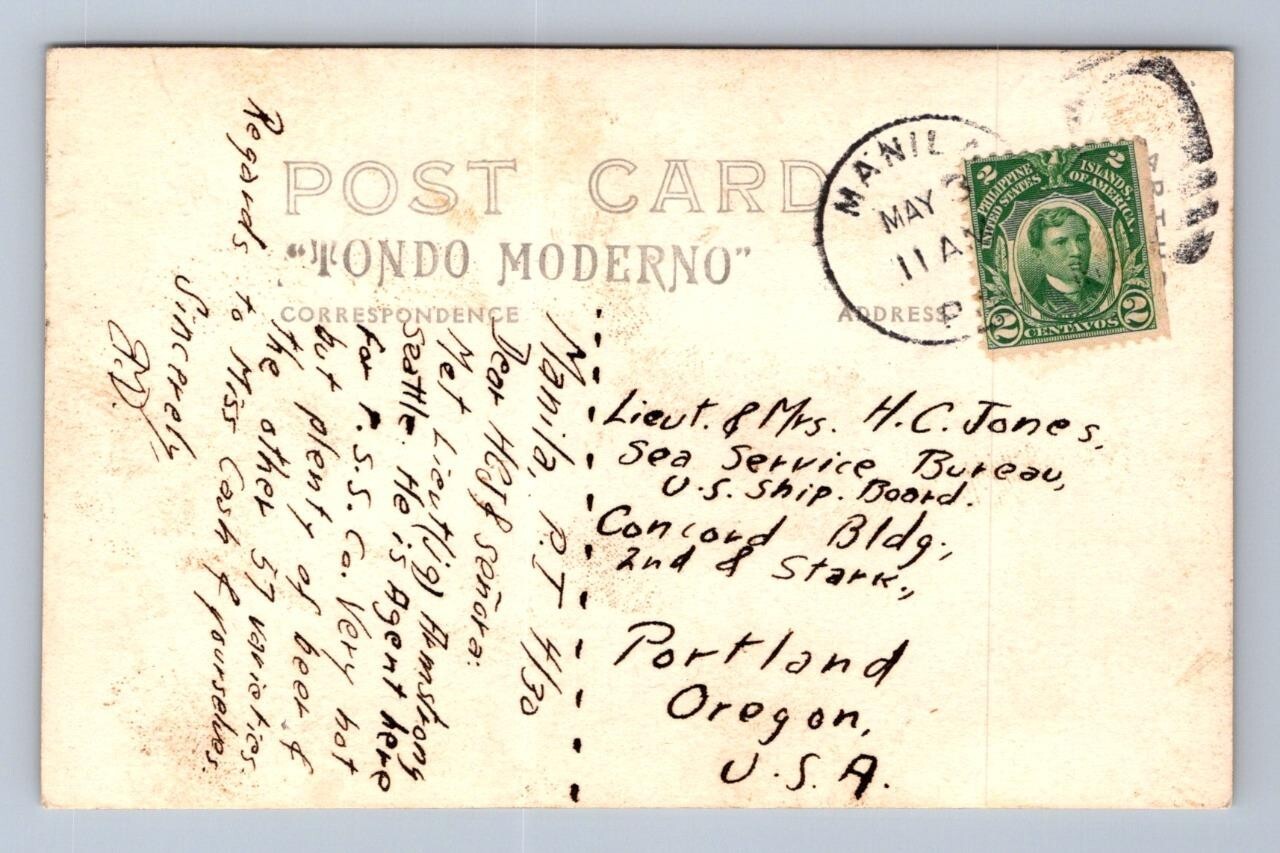 POST CARD
"TONDO MODERNO"
CORRESPONDENCE
ADDRESS
MANIL
MAY 3
11 A
P
2 2
PHILIPPINE ISLANDS
UNITED STATES OF AMERICA.
2 CENTAVOS 2
Manila, P.I 4/30
Dear HCJ & señora:
Met Lieut(jg) Armstrong
Seattle. He is Agent here
for P.S.S. Co. Very hot
but plenty of beer &
the other 57 varieties.
Regards to Miss Cash & yourselves.
Sincerely
Lieut. & Mrs. H.C. Jones,
Sea Service Bureau,
U.S. Ship. Board.
Concord Bldg.,
2nd & Stark.,
Portland
Oregon,
U.S.A.